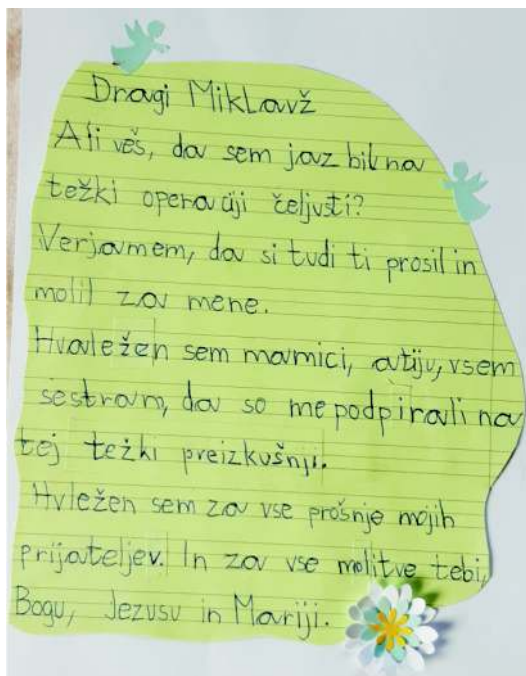 Dragi Miklavž
Ali veš, da sem jaz bil na
težki operaciji čeljusti?
Verjamem, da si tudi ti prosil in
molil za mene.
Hvaležen sem mamici, atiju, vsem
sestram, da so me podpirali na
tej težki preizkušnji.
Hvležen sem za vse prošnje mojih
prijateljev. In za vse molitve tebi,
Bogu, Jezusu in Mariji.